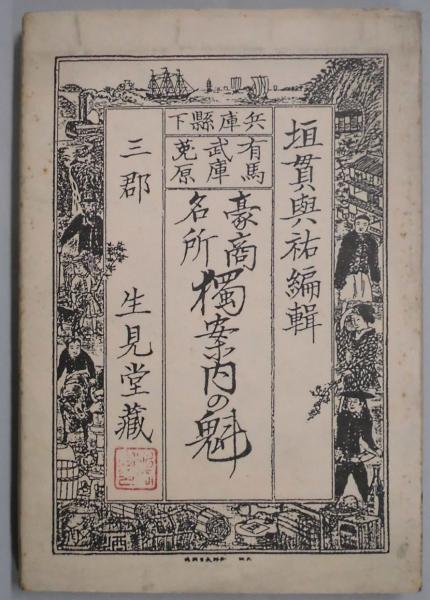 兵庫縣下
有馬
武庫
菟原
垣貫與祐編輯
豪商
名所
獨案内の魁
三郡
生見堂藏